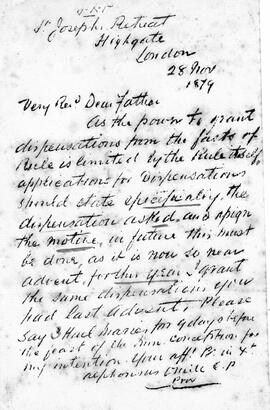 J.X.P.
St Joseph's Retreat
Highgate
London
28 Nov
1879
Very Revd Dear Father
As the power to grant
dispensations from the fasts of
Rule is limited by the Rule itself,
applications for dispensations
should state specifically, the
dispensation asked, and assign
the motive, in future this must
be done, as it is now so near
advent, for this year I grant
the same dispensations you
had last advent, Please
say 3 Hail Marys for 9 days before
the feast of the Imm. Conception for
my intention Your afft Br in X.
Alphonsus O'Neill C.P
Prov